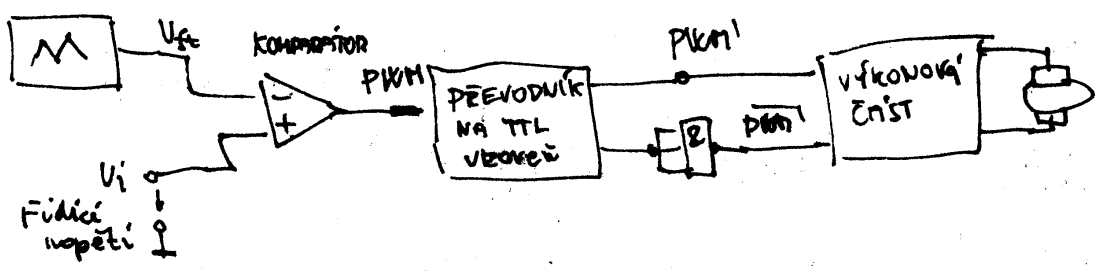 Uft
KOMPARÁTOR
PWM
PŘEVODNÍK
NA TTL
ÚROVEŇ
PWM'
&
PWM'
VÝKONOVÁ
ČÁST
-
+
Ui
Řídící
napětí